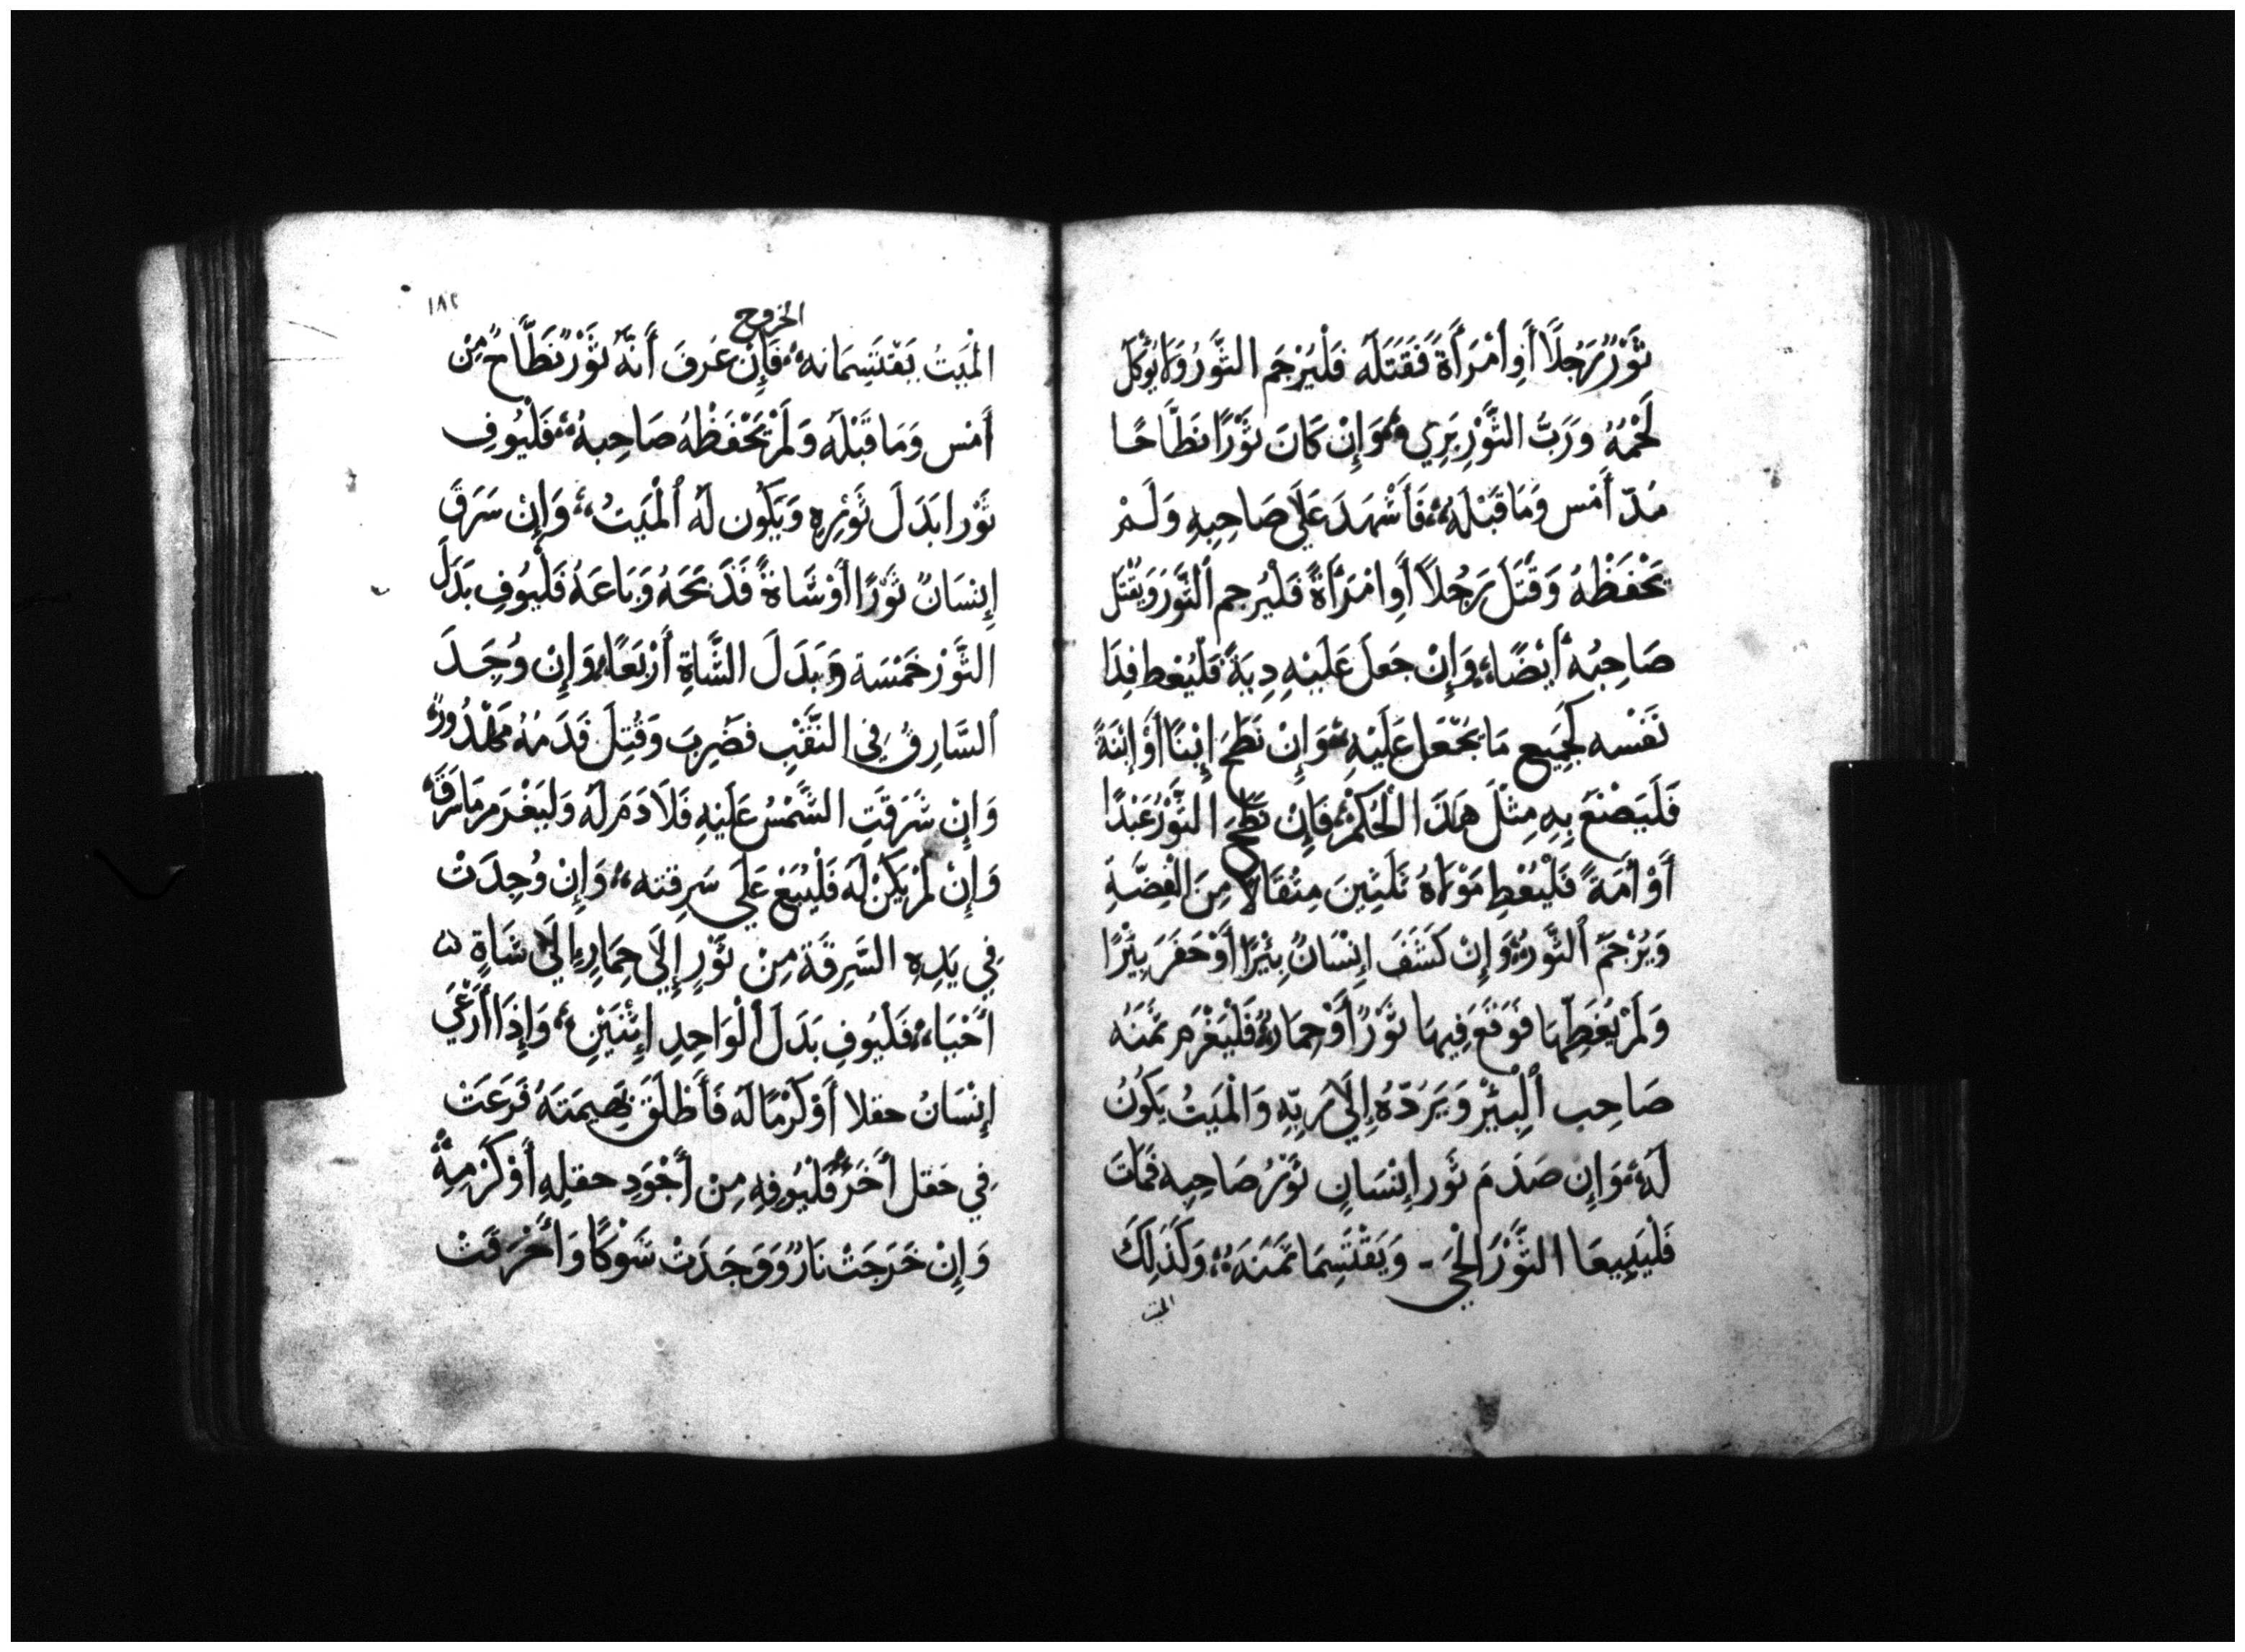 ثَوْرٌ رَجُلًا أَوِ أمْرَأَةً فَقَتَلَه فَلْيُرْجَم الثَّوْرُ وَلَا يُؤكَل
لَحْمُهُ وَرَبُّ الثَّوْرِ بَرِي وَإِنْ كَانَ ثَوْرًا نَطَّاحًا
مُذ أَمْس وَمَا قَبْلَهُ فَأَشْهَدَ عَلَى صَاحِبِهِ وَلَمْ
يَحْفَظْهُ وَقَتَلَ رَجُلًا أَوِ امْرَأَةً فَلْيُرجم ٱلثَّوْرَ وَيُقْتَل
صَاحِبُهُ أَيْضًا وَإِنْ جَعَلَ عَلَيْهِ دِيَةً فَلْيُعْط فِدَا
نَفْسه لِجَمِيعِ مَا يُجْعَل عَلَيْهِ وَإِنْ نَطَحَ إِبْنًا أَوْ إِبْنَةً
فَلَيَصْنَعَ بِهِ مِثْلَ هَذَا الْحُكْمِ فَإِنْ نَطَحَ الثَّوْرُ عَبْدًا
أَوْ أَمَةً فَلْيُعْطِ مَوْلَاهُ ثَلَثِينَ مِثْقَالًا مِنَ الْفِضَّةِ
وَيُرْجَمُ ٱلثَّوْرُ وَإِنْ كَشَفَ إِنْسَانٌ بِئْرًا أَوْ حَفَرَ بِئْرًا
وَلَمْ يُغَطِّهَا فَوَقَعَ فِيهَا ثَوْرٌ أَوْ حِمَارٌ فَلْيَغْرَم ثَمَنَهُ
صَاحِب ٱلْبِئْرِ وَيَرُدّهُ إِلَى رَبِّهِ وَالْمَيتُ يَكُونُ
لَهُ وَإِن صَدَمَ ثَور إِنْسَانٍ ثَوْرُ صَاحِبِه فَمَاتَ
فَلْيَبِيعَا الثَّوْرَ الْحَي وَيَقْتَسِمَا ثَمَنَهُ وَكَذَلِكَ
الميت
١٨٢
الخروج
الْمَيتُ يَقْتَسِمَانه فَإِنْ عَرَفَ أَنَّهُ ثَوْرٌ نَطَّاحٌ مِنْ
أَمْس وَمَا قَبْلَه وَلَمْ يَحْفَظْهُ صَاحِبهُ فَلْيُوفِ
ثَوْرا بَدَلَ ثَوْرِهِ وَيَكُون لَهُ ٱلْمَيتُ وَإِنْ سَرَقَ
إِنسَانٌ ثَوْرًا أَوْ شَاةً فَذَبَحَهُ وَبَاعَهُ فَلْيُوفِ بَدَلَ
الثَّوْرِ خَمْسَة وَبَدَلَ الشَّاةِ أَرْبَعًا وَإِنْ وُجِدَ
ٱلسَّارِقُ فِي النَّقْبِ فَضُرِبَ وَقُتِلَ فَدَمُهُ مَهْدُورٌ
وَإِنْ شَرَقَتِ الشَّمْسُ عَلَيْهِ فَلَا دَمَ لَه وَليَغْرَم مَا سَرَقَهُ
وَإِنْ لَمْ يَكُنْ لَه فَلْيُبَعْ عَلَى سَرِقته وَإِنْ وُجِدَتْ
فِي يَدِه السَّرِقَة مِنْ ثَوْرٍ إِلَى حِمَارٍ إِلَى شَاةٍ
أَحْيَاءً فَليُوفِ بَدَلَ ٱلْوَاحِدِ إِثْنَيْنِ وَإِذَا أَرْعَى
إِنْسَانٌ حقلا أَوْ كَرْمًا لَه فَأَطْلَقَ بَهِيمَتَهُ فَرَعَتْ
فِي حَقل أَخَرَ فَلْيُوفِهِ مِنْ أَجْوَدِ حقلِهِ أَوْ كَرْمِهِ
وَإِنْ خَرَجَتْ نَارٌ وَوَجَدَتْ شَوْكًا وَأَحْرَقَتْ